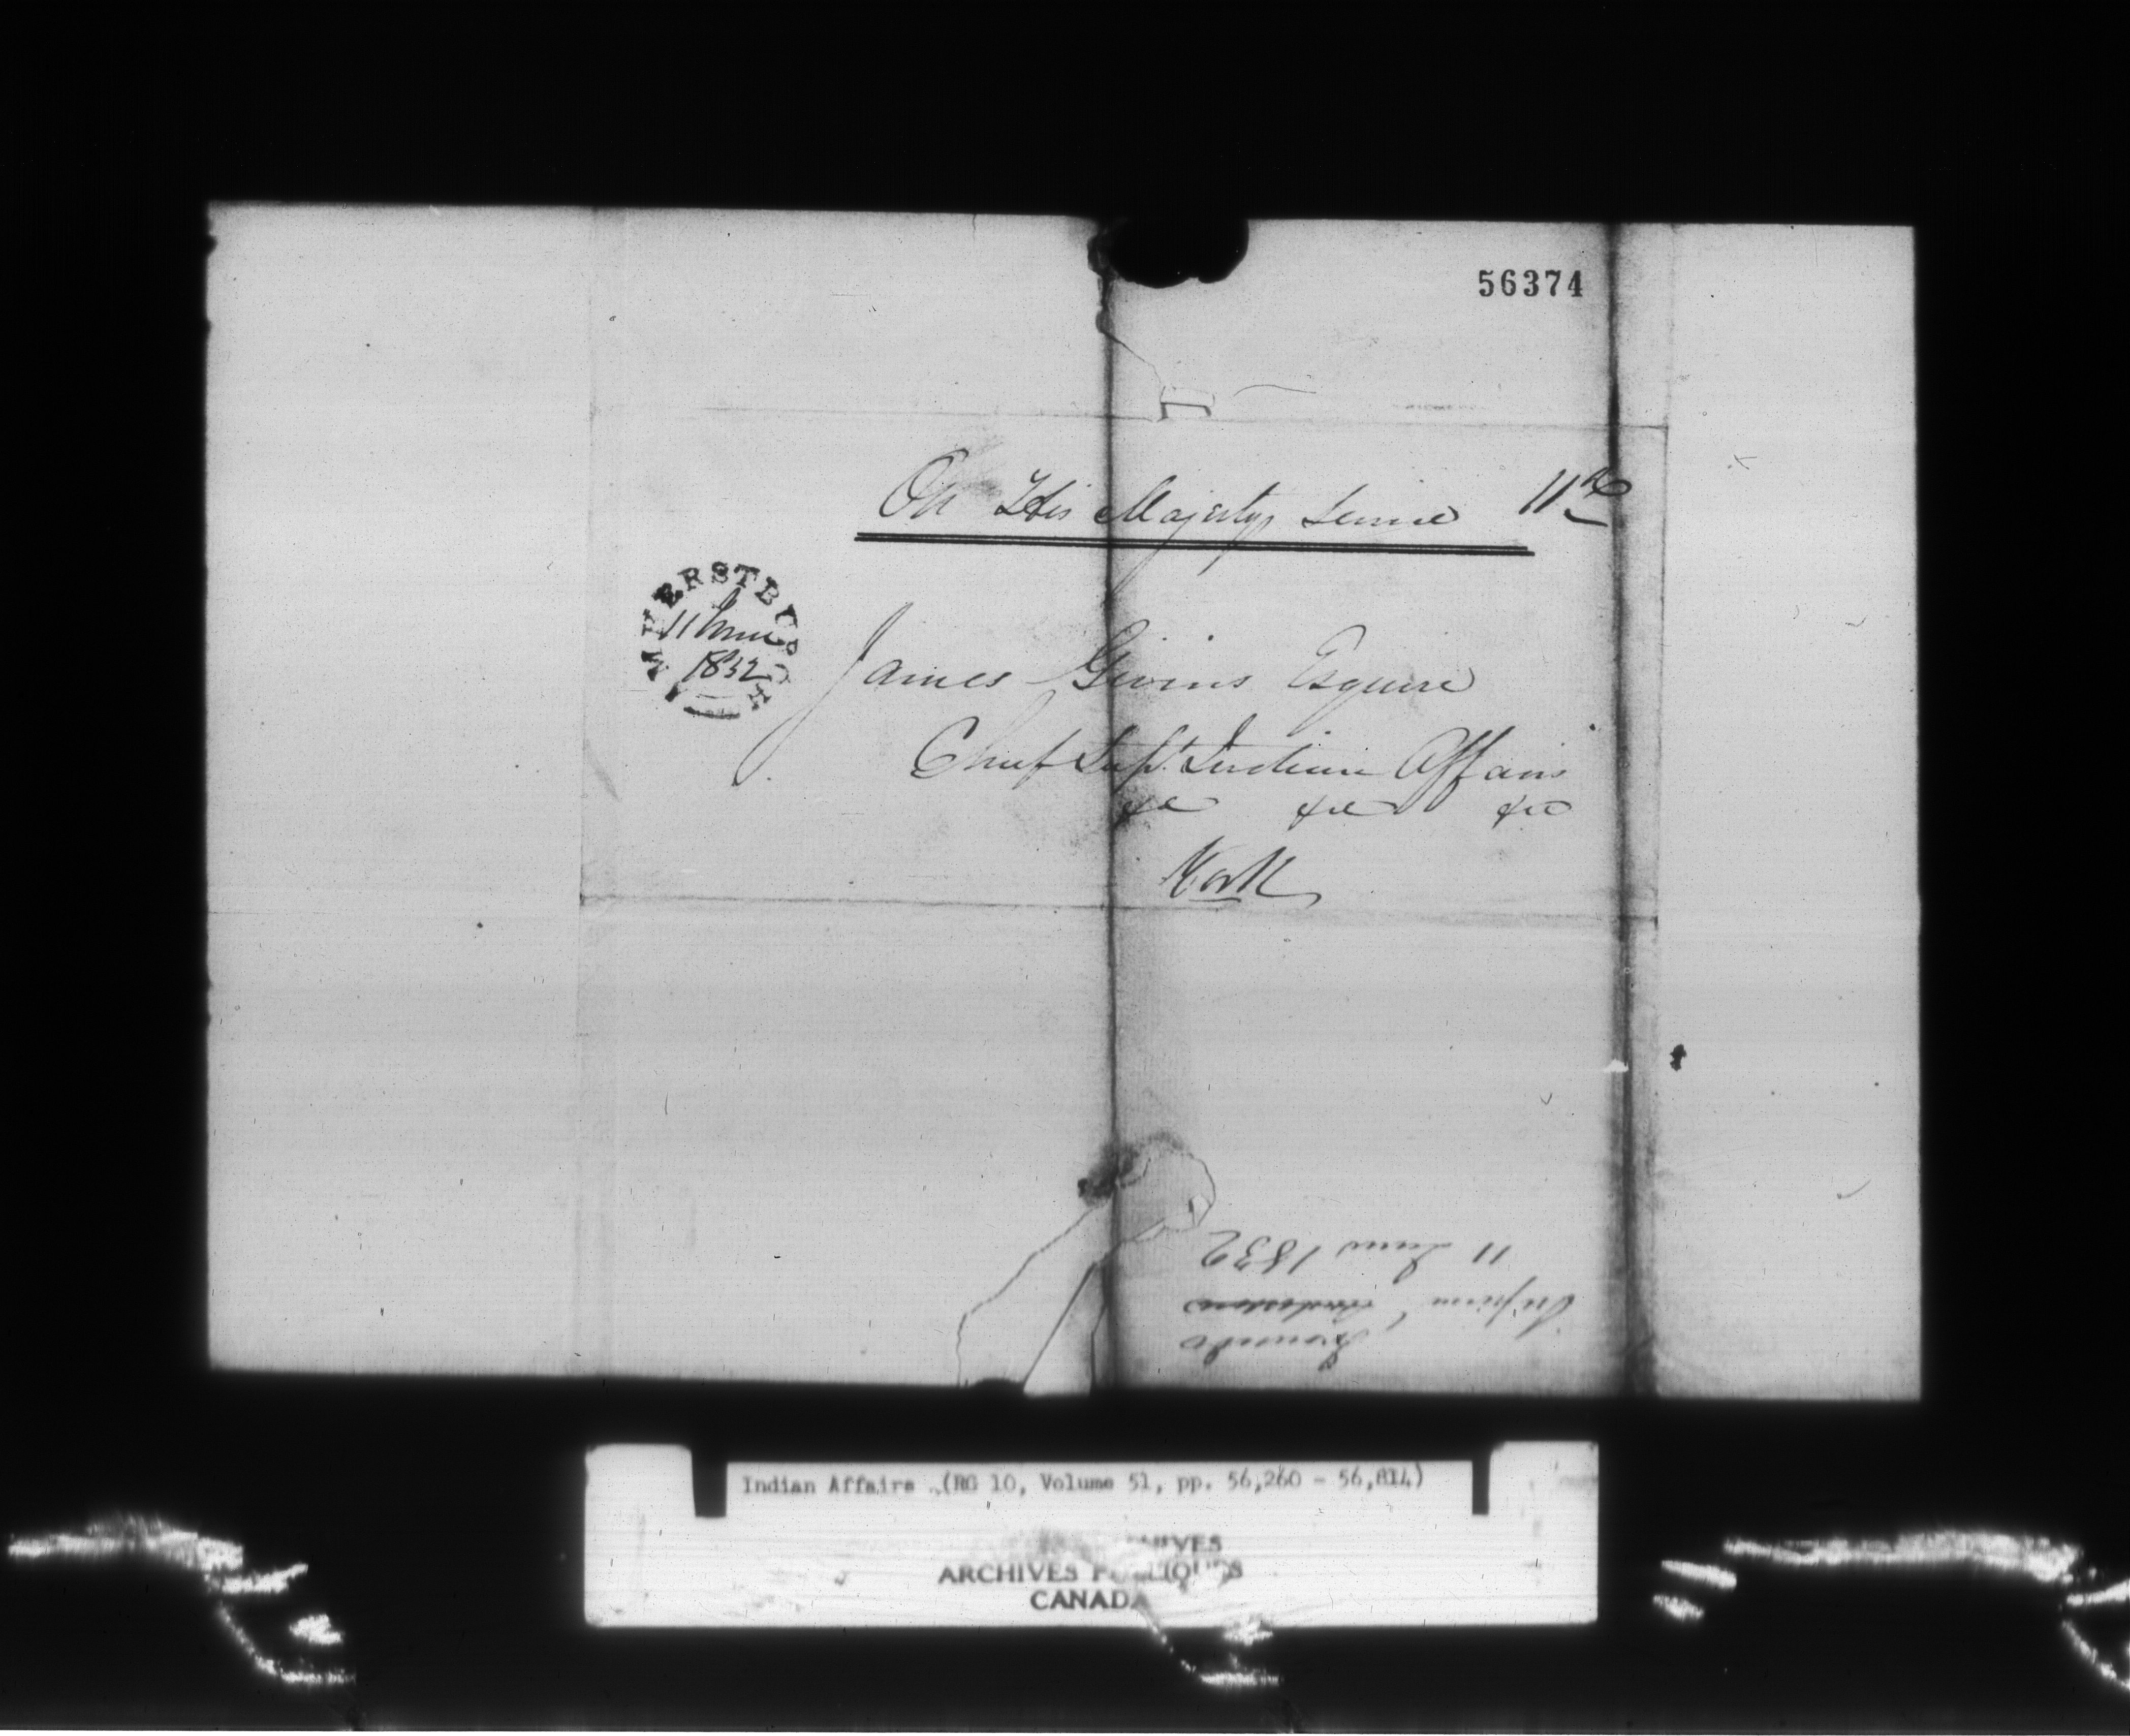 56374
On His Majestys Service 11
AMHERSTBURGH
11 June
1832
James Givins Esquire
Chief Supt. Indian Affairs
&c &c &c
York
11 June 1832
Indian Affairs (RG 10, Volume 51, pp. 56,260 - 56,814)
ARCHIVES PUBLIQUES
CANADA